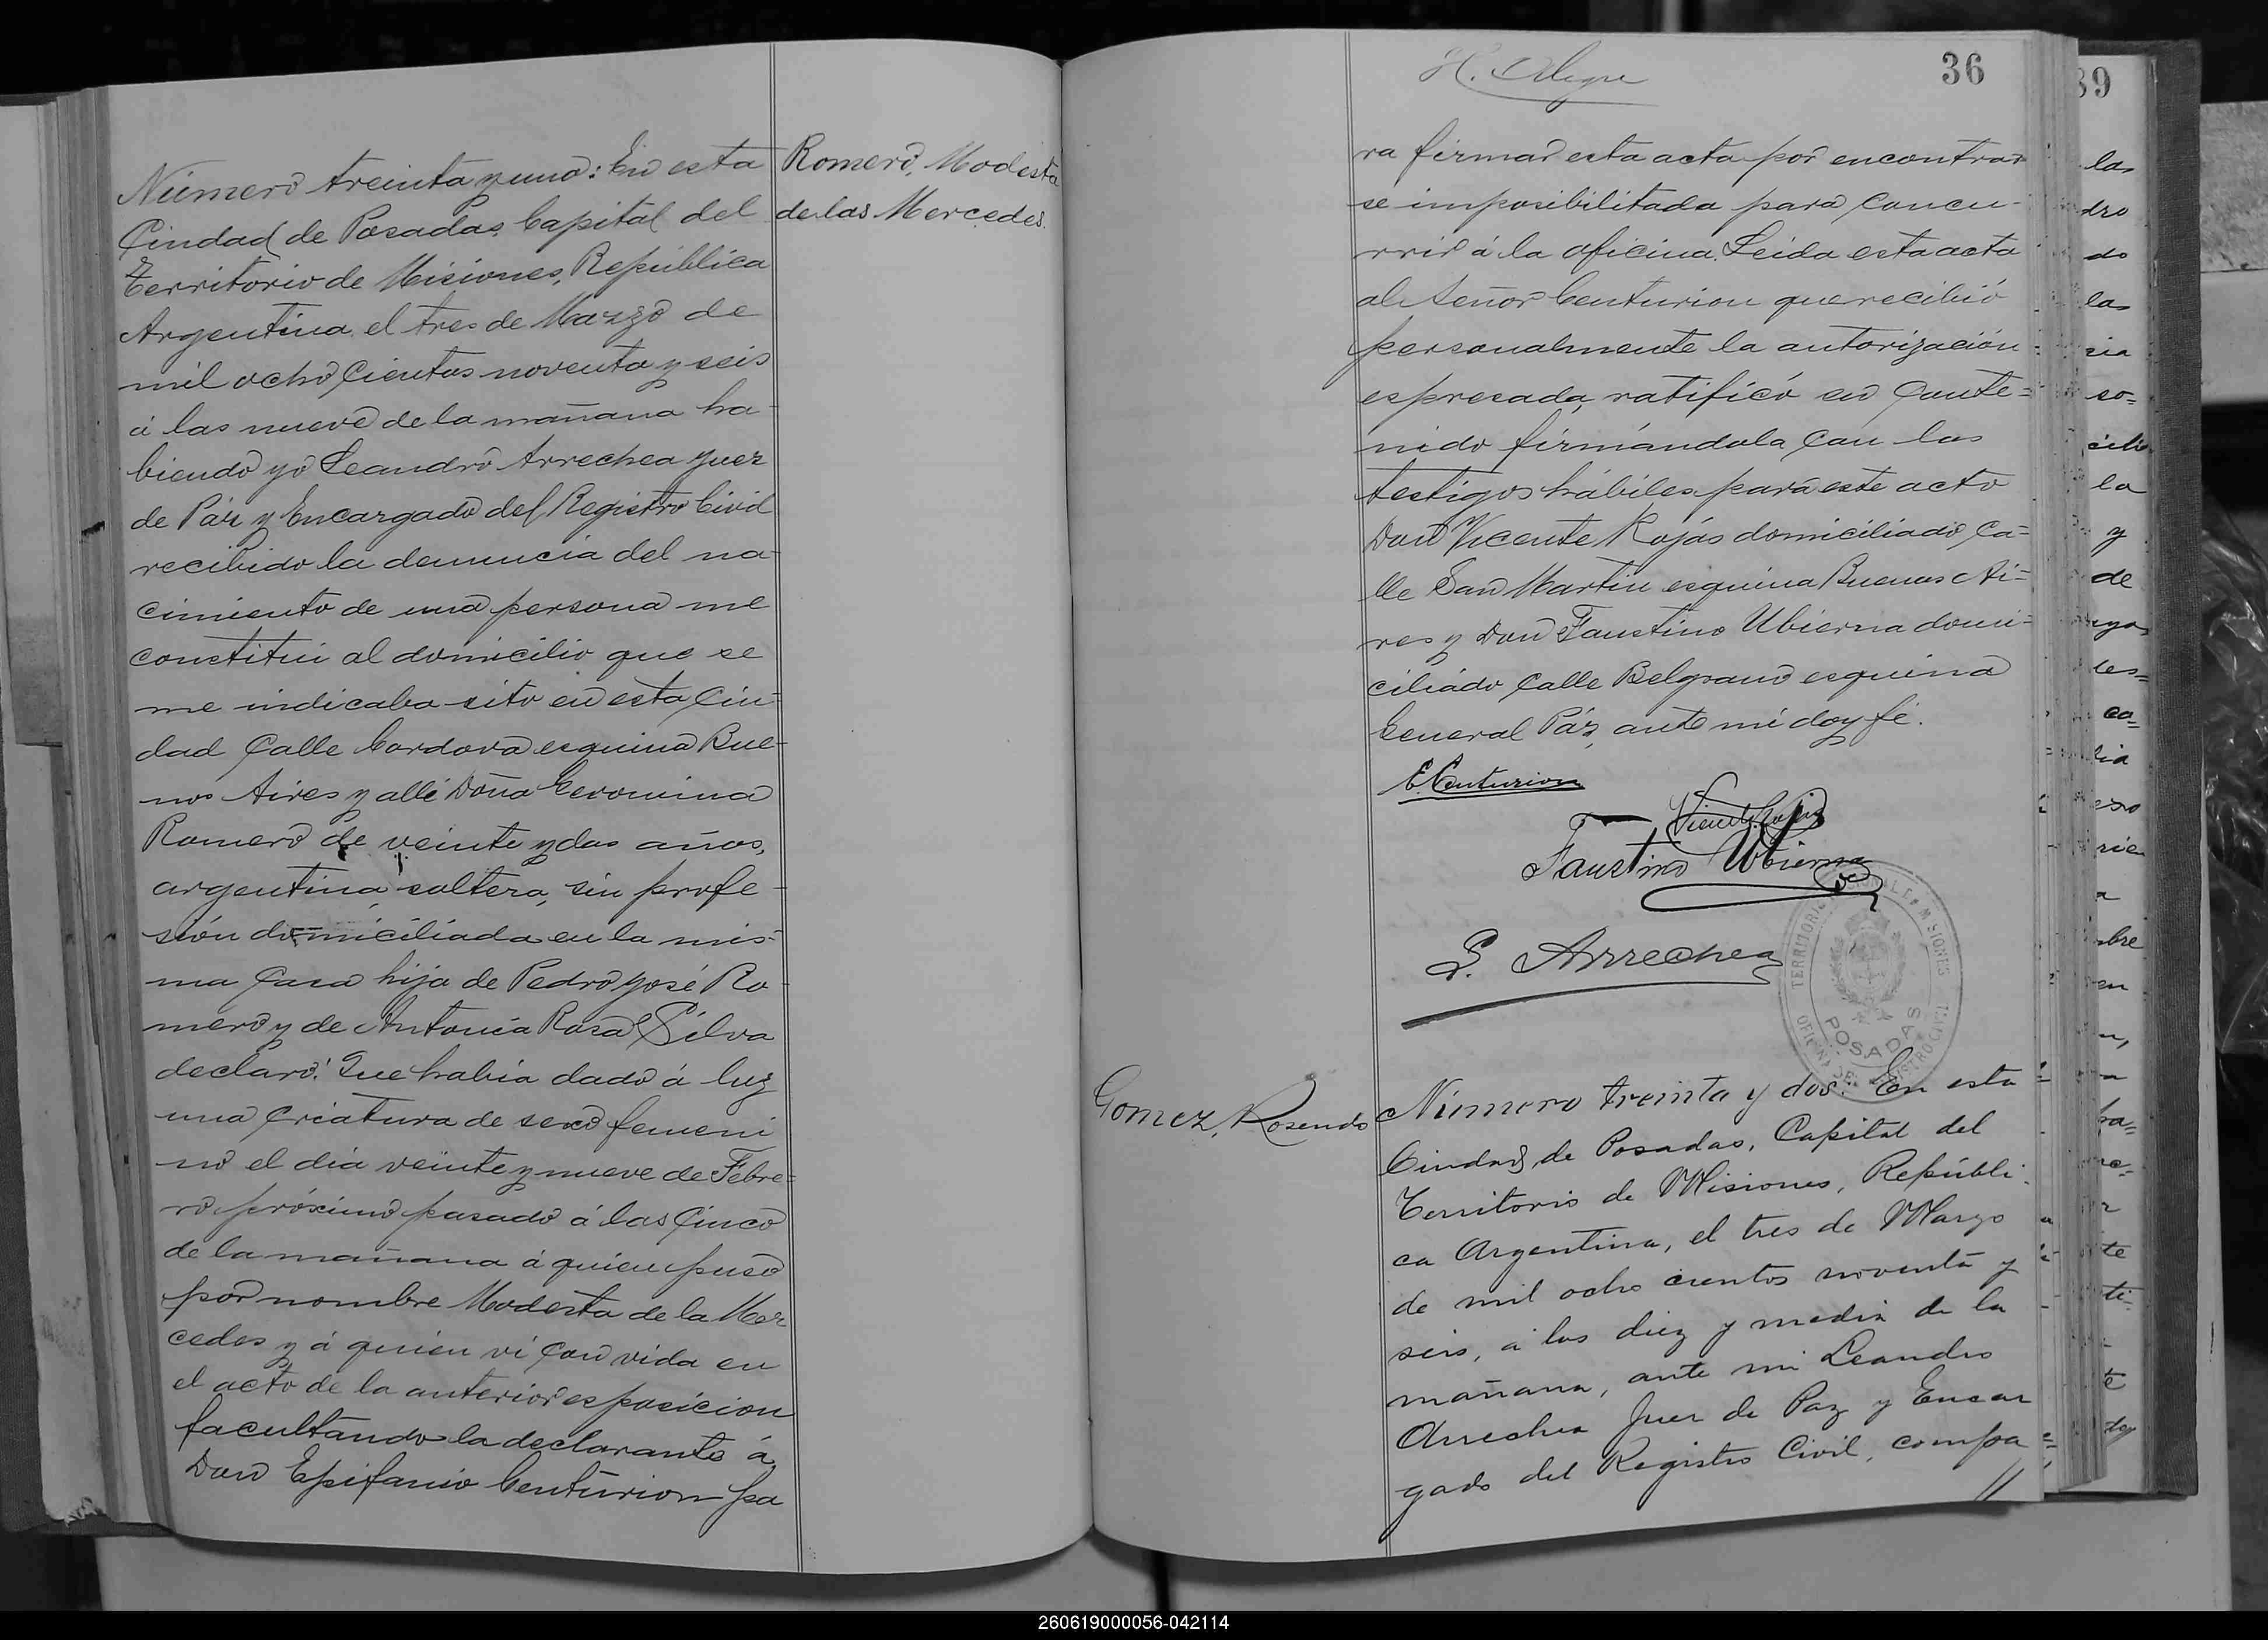 Número treinta y uno: En esta
Ciudad de Posadas Capital del
Territorio de Misiones, República
Argentina el tres de Marzo de
mil ocho cientos noventa y seis
á las nueve de la mañana ha-
biendo yo Leandro Arrechea Juez
de Páz y Encargado del Registro Civil
recibido la denuncia del na-
cimiento de una persona me
constitui al domicilio que se
me indicaba sito en esta Ciu-
dad Calle Cordova esquina Bue-
nos Aires y allí Doña Geronima
Romero de veinte y dos años,
argentina, soltera, sin profe-
sión domiciliada en la mis-
ma casa hija de Pedro José Ro-
mero y de Antonia Rosa Silva
declaró: Que había dado á luz
una criatura de sexo femeni
no el día veinte y nueve de Febre=
ro próximo pasado á las cinco
de la mañana á quien puso
por nombre Modesta de la Mer
cedes y á quién ví con vida en
el acto de la anterior esposicion
facultando la declarante á
Don Epifanio Centurion pa
Romero, Modesta
de las Mercedes.
H. Alegre
36
ra firmar esta acta por encontrar
se imposibilitada para concu-
rrir á la oficina. Leida esta acta
al Señor Centurion que recibió
personalmente la autorización
espresada, ratificó su conte=
nido firmándola con los
testigos hábiles para este acto
Don Vicente Rojás domiciliado, ca=
lle San Martin esquina Buenos Ai=
res y Don Faustino Ubierna domi-
ciliádo calle Belgrano esquina
General Páz, ante mí doy fé.
E. Centurion
Vicente Rojas
Faustino Ubierna
L. Arrechea
TERRITORIO NACIONAL DE MISIONES
POSADAS
OFICINA DEL REGISTRO CIVIL
Gomez, Rosendo
Número treinta y dos: En esta
Ciudad de Posadas, Capital del
Territorio de Misiones, Repúbli-
ca Argentina, el tres de Marzo
de mil ocho cientos noventa y
seis, á las diez y media de la
mañana, ante mi Leandro
Arrechea Juez de Paz y Encar
gado del Registro Civil, compa
//
89
las
dro
do
las
sia
so=
cilio
la
y
de
les=
ca=
lia
exo
rie
a
bre
en
pa=
te
ti-
te
doy
260619000056-042114